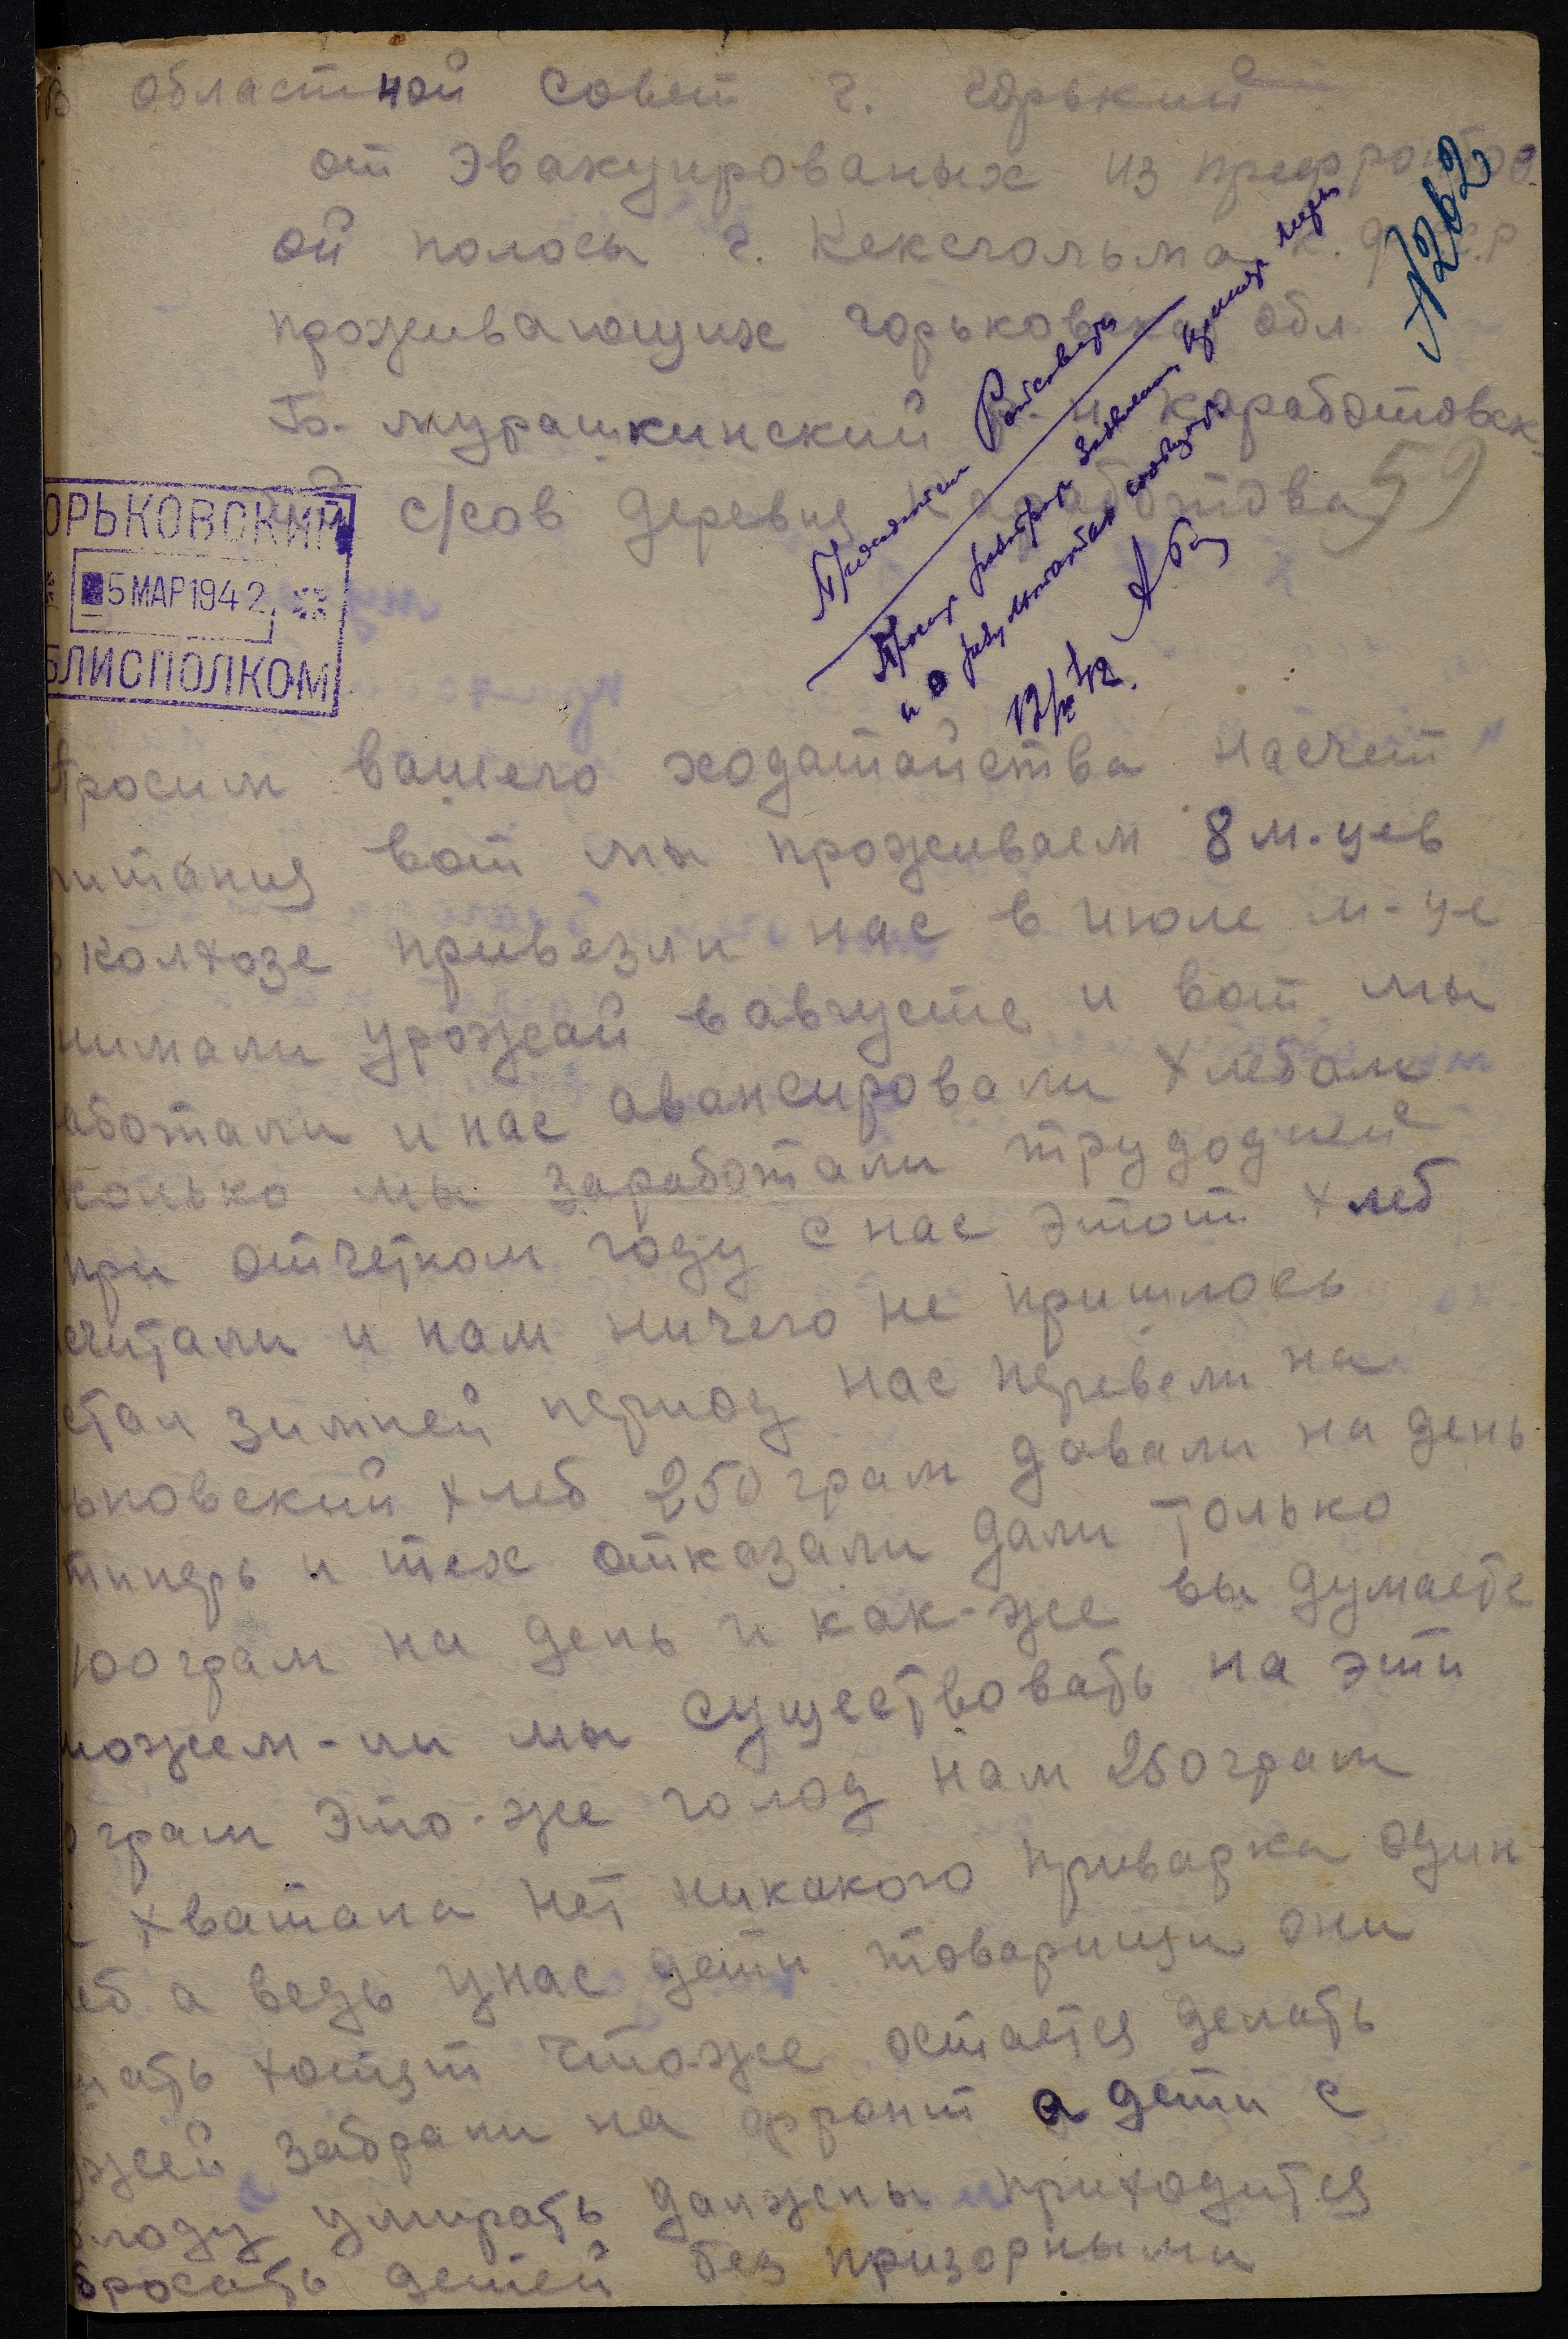 В областной совет г. Горький
от эвакуированых из префронтов
ой полосы г. Кексгольма к.ф.с.с.р
проживающих горьковска обл.
Б. мурашкинский р-н каработовск
с/сов деревня Каработова
№262
59
ОРЬКОВСКИЙ
5 МАР 1942
БЛИСПОЛКОМ
Прошу разобрать заявление, принять меры
и о результатах сообщить
12/III 42.
Просим вашего ходатайства насчет
питания вот мы проживаем 8 м-цев
в колхозе привезли нас в июле м-це
нимали урожай в августе и вот мы
аботали и нас авансировали хлебом
колько мы заработали трудодней
при отчетном году с нас этот хлеб
считали и нам ничего не пришлось
стал зимней период нас перевели на
ьковский хлеб 250 грам давали на день
типерь и тех отказали дали только
100 грам на день и как-же вы думаете
можем-ли мы существовать на эти
грам это-же голод нам 250 грам
хватана нет никакого приварка один
еб а ведь у нас дети товарищи они
шать хотят что-же остается делать
жей забрали на фронт а дети с
олоду умирать должены приходится
бросать детей без призорными